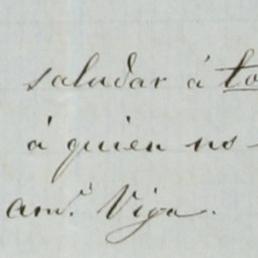 saludar á to
á quien no-
am.º Viga.